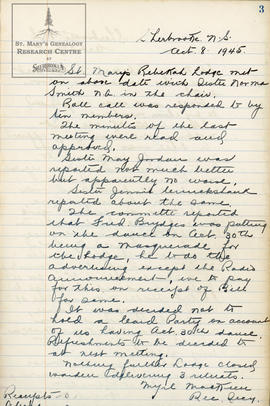 3
St. Mary's Genealogy
Research Centre
AT
SHERBROOKE
Sherbrooke, N.S
Oct 8 1945
St. Mary's Rebekah Lodge met
on above date with Sister Norma
Smith N.G. in the chair.
Roll call was responded to by
ten members.
The minutes of the last
meeting were read and
approved.
Sister May Jordan was
reported not much better
but apparently no worse.
Sister Jennie
reported about the same.
The committe reported
that Fred Bridges was putting
on the dance on Oct. 30th
being a masquerade for
the Lodge, he to do the
advertising except the Radio
announcement, we to pay
for this on receipt of Bill
for same.
It was decided not to
hold a Card Party on account
of us having Oct. 30th dance.
Refreshments to be decided to
at next meeting.
Nothing further Lodge closed
warden delivering 3 reheats.
Myrl
Rec Secy.
Receipts - 0.